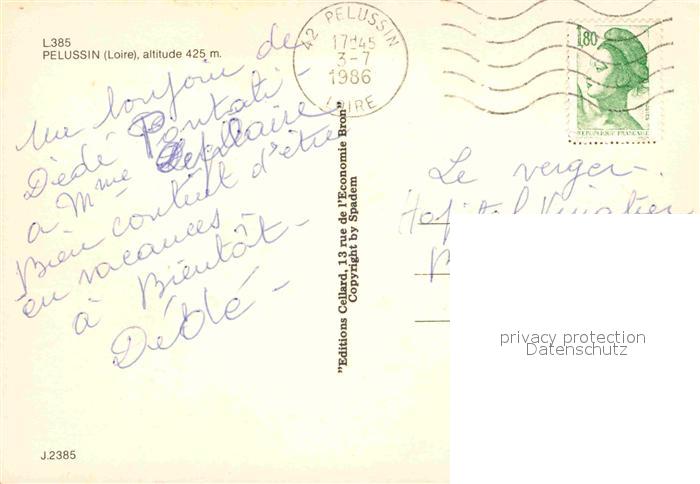 L385
PELUSSIN (Loire), altitude 425 m.
42 PELUSSIN
17H45
3-7
1986
LOIRE
1,80
REPUBLIQUE FRANÇAISE
Un bonjour de
Dédé
a Mme
Bien content d'être
en vacances -
à Bientôt -
Dédé -
"Editions Cellard, 13 rue de l'Economie Bron"
Copyright by Spadem
Le verger -
Hopital Vinatier
privacy protection
Datenschutz
J.2385